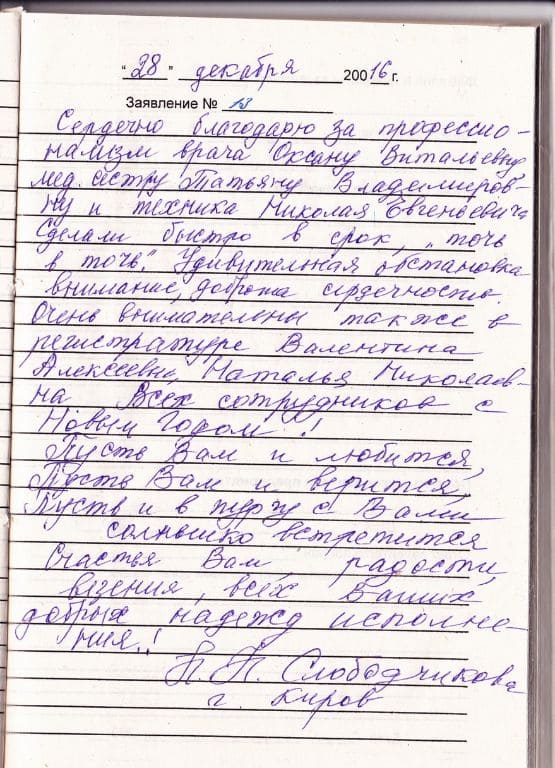 "28" декабря 20016г.
Заявление № 13
Сердечно благодарю за профессио-
нализм врача Оксану Витальевну
мед. сестру Татьяну Владимиров-
ну и техника Николая Евгеньевича
Сделали быстро в срок, "точь
в точь". Удивительная обстановка
внимание, доброта сердечность.
Очень внимательны также в
регистратуре Валентина
Алексеевна, Наталья Николаев-
на Всех сотрудников с
Новым Годом!
Пусть Вам и любится,
Пусть Вам и верится,
Пусть и в пургу с Вами
солнышко встретится
Счастья Вам, радости,
везения, всех Ваших
добрых надежд исполне-
ния.!
Н. П. Слободчикова
г. Киров